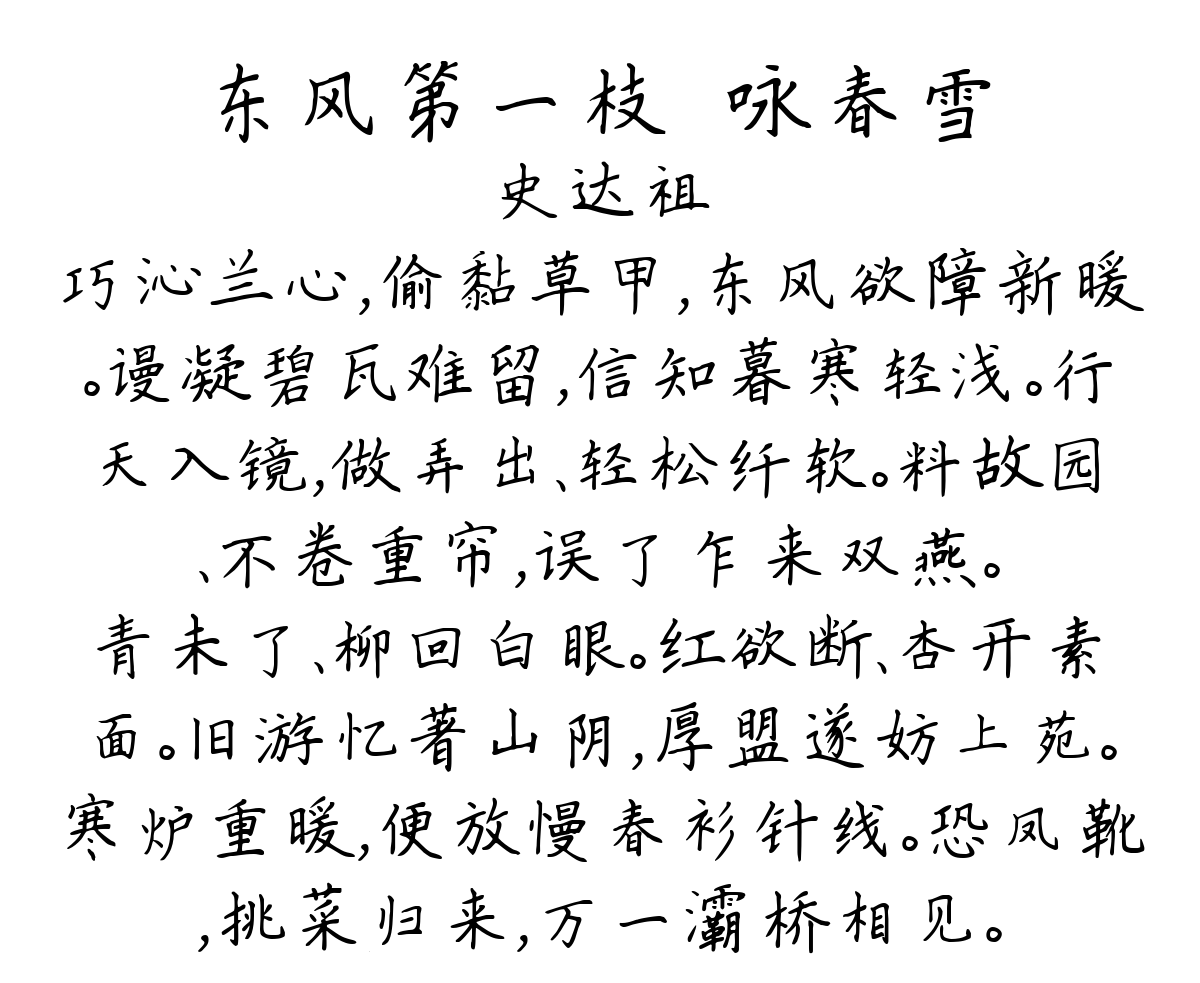 东风第一枝 咏春雪
史达祖
巧沁兰心,偷黏草甲,东风欲障新暖
。谩凝碧瓦难留,信知暮寒轻浅。行
天入镜,做弄出、轻松纤软。料故园
、不卷重帘,误了乍来双燕。
青未了、柳回白眼。红欲断、杏开素
面。旧游忆著山阴,厚盟遂妨上苑。
寒炉重暖,便放慢春衫针线。恐凤靴
,挑菜归来,万一灞桥相见。